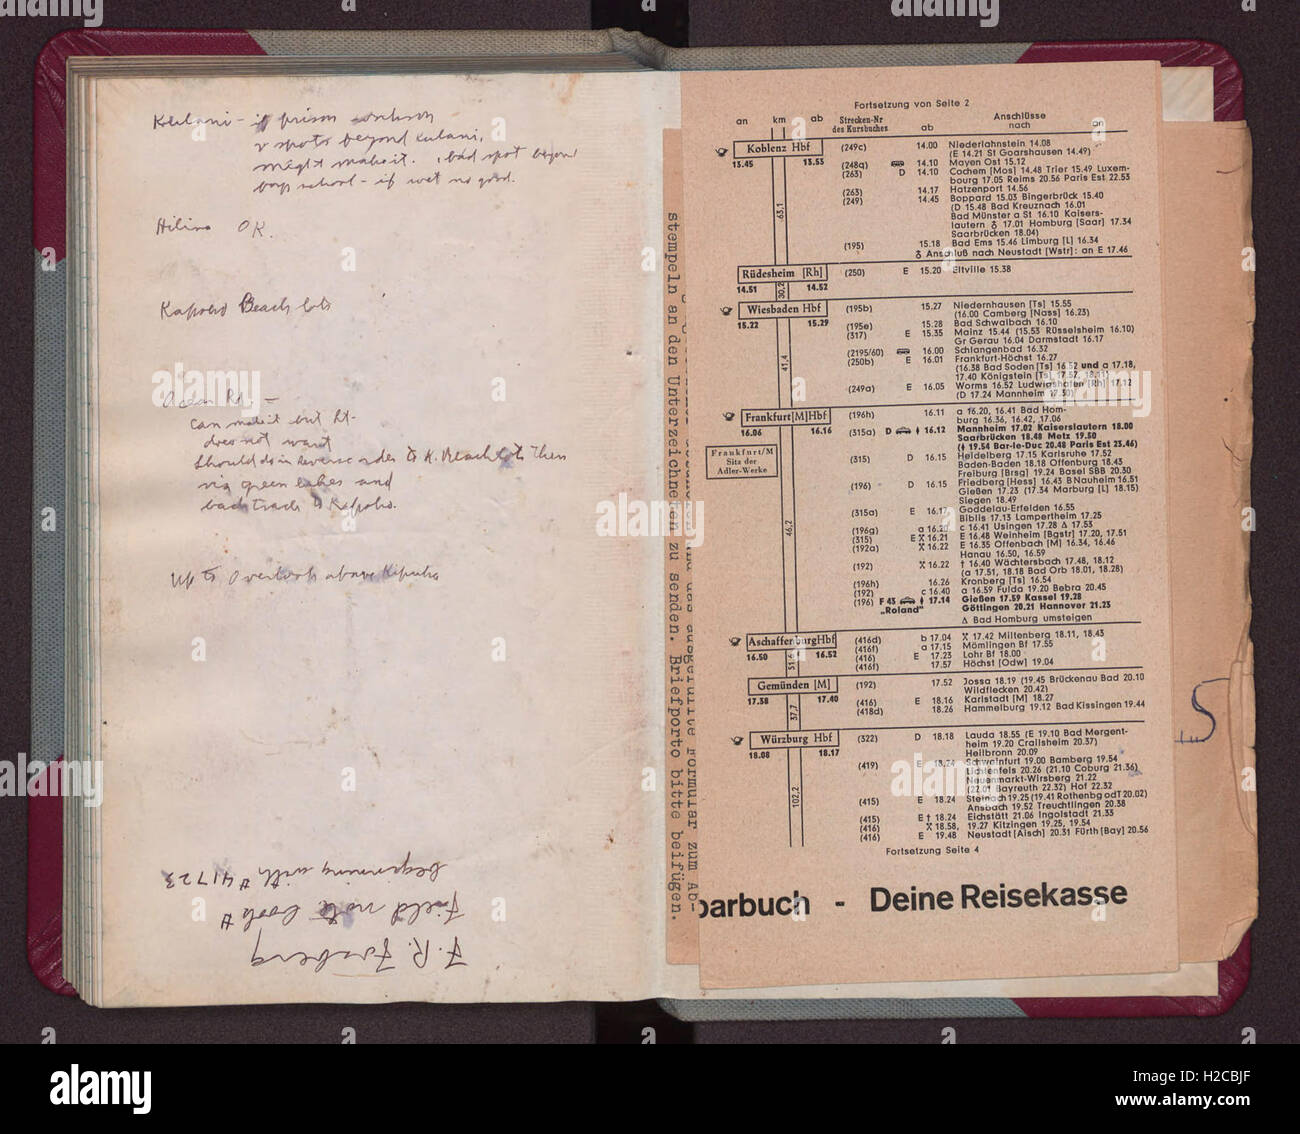 Kulani - if prison
spots beyond Kulani,
might make it. bad spot beyond
boys school - if wet no good.
Hilina OK.
Kapoho Beach Lots
Rd. -
can make it but Ft-
does not want
should do in reverse order to K. Beach lots then
via green lakes and
backtrack to Kapoho.
Up to Overlook above Kapoho
F. R. Fosberg
Field note book #
beginning with # 41723
stempeln an den Unterzeichneten zu senden. Briefporto bitte beifügen.
das ausgefüllte Formular zum Ab-
Fortsetzung von Seite 2
an km ab Strecken-Nr des Kursbuches ab Anschlüsse nach an
Koblenz Hbf (249c) 14.00 Niederlahnstein 14.08
(E 14.21 St Goarshausen 14.49)
13.45 13.55 (248q) 14.10 Mayen Ost 15.12
(263) D 14.10 Cochem [Mos] 14.48 Trier 15.49 Luxem-
bourg 17.05 Reims 20.56 Paris Est 22.53
(263) 14.17 Hatzenport 14.56
(249) 14.45 Boppard 15.03 Bingerbrück 15.40
(D 15.48 Bad Kreuznach 16.01
Bad Münster a St 16.10 Kaisers-
lautern 17.01 Homburg [Saar] 17.34
Saarbrücken 18.04)
63,1
(195) 15.18 Bad Ems 15.46 Limburg [L] 16.34
Anschluß nach Neustadt [Wstr]: an E 17.46
Rüdesheim [Rh] (250) E 15.20 Eltville 15.38
14.51 14.52
30,2
Wiesbaden Hbf (195b) 15.27 Niedernhausen [Ts] 15.55
(16.00 Camberg [Nass] 16.23)
15.22 15.29 (195e) 15.28 Bad Schwalbach 16.10
(317) E 15.35 Mainz 15.44 (15.53 Rüsselsheim 16.10)
Gr Gerau 16.04 Darmstadt 16.17
(2195/60) 16.00 Schlangenbad 16.32
(250b) E 16.01 Frankfurt-Höchst 16.27
(16.38 Bad Soden [Ts] 16.52 und a 17.18,
17.40 Königstein [Ts] 17.57, 18.11)
41,4
(249a) E 16.05 Worms 16.52 Ludwigshafen [Rh] 17.12
(D 17.24 Mannheim 17.30)
Frankfurt[M]Hbf (196h) 16.11 a 16.20, 16.41 Bad Hom-
burg 16.36, 16.42, 17.06
16.06 16.16 (315a) D 16.12 Mannheim 17.02 Kaiserslautern 18.00
Saarbrücken 18.48 Metz 19.50
(19.54 Bar-le-Duc 20.48 Paris Est 23.46)
Frankfurt/M
Sitz der
Adler-Werke
(315) D 16.15 Heidelberg 17.15 Karlsruhe 17.52
Baden-Baden 18.18 Offenburg 18.43
Freiburg [Brsg] 19.24 Basel SBB 20.30
(196) D 16.15 Friedberg [Hess] 16.43 B Nauheim 16.51
Gießen 17.23 (17.34 Marburg [L] 18.15)
Siegen 18.49
(315a) E 16.17 Goddelau-Erfelden 16.55
Biblis 17.13 Lampertheim 17.25
(196g) a 16.20 c 16.41 Usingen 17.28 Δ 17.53
(315) E 16.21 E 16.48 Weinheim [Bgstr] 17.20, 17.51
(192a) 16.22 E 16.35 Offenbach [M] 16.34, 16.46
Hanau 16.50, 16.59
46,2
(192) 16.22 † 16.40 Wächtersbach 17.48, 18.12
(a 17.51, 18.18 Bad Orb 18.01, 18.28)
(196h) 16.26 Kronberg [Ts] 16.54
(192) c 16.40 a 16.59 Fulda 19.20 Bebra 20.45
(196) F 43 17.14 Gießen 17.59 Kassel 19.28
„Roland" Göttingen 20.21 Hannover 21.23
Δ Bad Homburg umsteigen
Aschaffenburg Hbf (416d) b 17.04 17.42 Miltenberg 18.11, 18.43
16.50 16.52 (416f) a 17.15 Mömlingen Bf 17.55
(416) E 17.23 Lohr Bf 18.00
(416f) 17.57 Höchst [Odw] 19.04
51,6
Gemünden [M] (192) 17.52 Jossa 18.19 (19.45 Brückenau Bad 20.10
Wildflecken 20.42)
17.38 17.40 (416) E 18.16 Karlstadt [M] 18.27
(418d) 18.26 Hammelburg 19.12 Bad Kissingen 19.44
37,7
Würzburg Hbf (322) D 18.18 Lauda 18.55 (E 19.10 Bad Mergent-
heim 19.20 Crailsheim 20.37)
Heilbronn 20.09
18.08 18.17 (419) E 18.24 Schweinfurt 19.00 Bamberg 19.54
Lichtenfels 20.26 (21.10 Coburg 21.36)
Neuenmarkt-Wirsberg 21.22
(22.01 Bayreuth 22.32) Hof 22.32
(415) E 18.24 Steinach 19.25 (19.41 Rothenbg odT 20.02)
Ansbach 19.52 Treuchtlingen 20.38
102,2
(415) E † 18.24 Eichstätt 21.06 Ingolstadt 21.33
(416) 18.58, 19.27 Kitzingen 19.25, 19.54
(416) E 19.48 Neustadt [Aisch] 20.31 Fürth [Bay] 20.56
Fortsetzung Seite 4
parbuch - Deine Reisekasse
5
alamy stock photo
H2CBJF
www.alamy.com